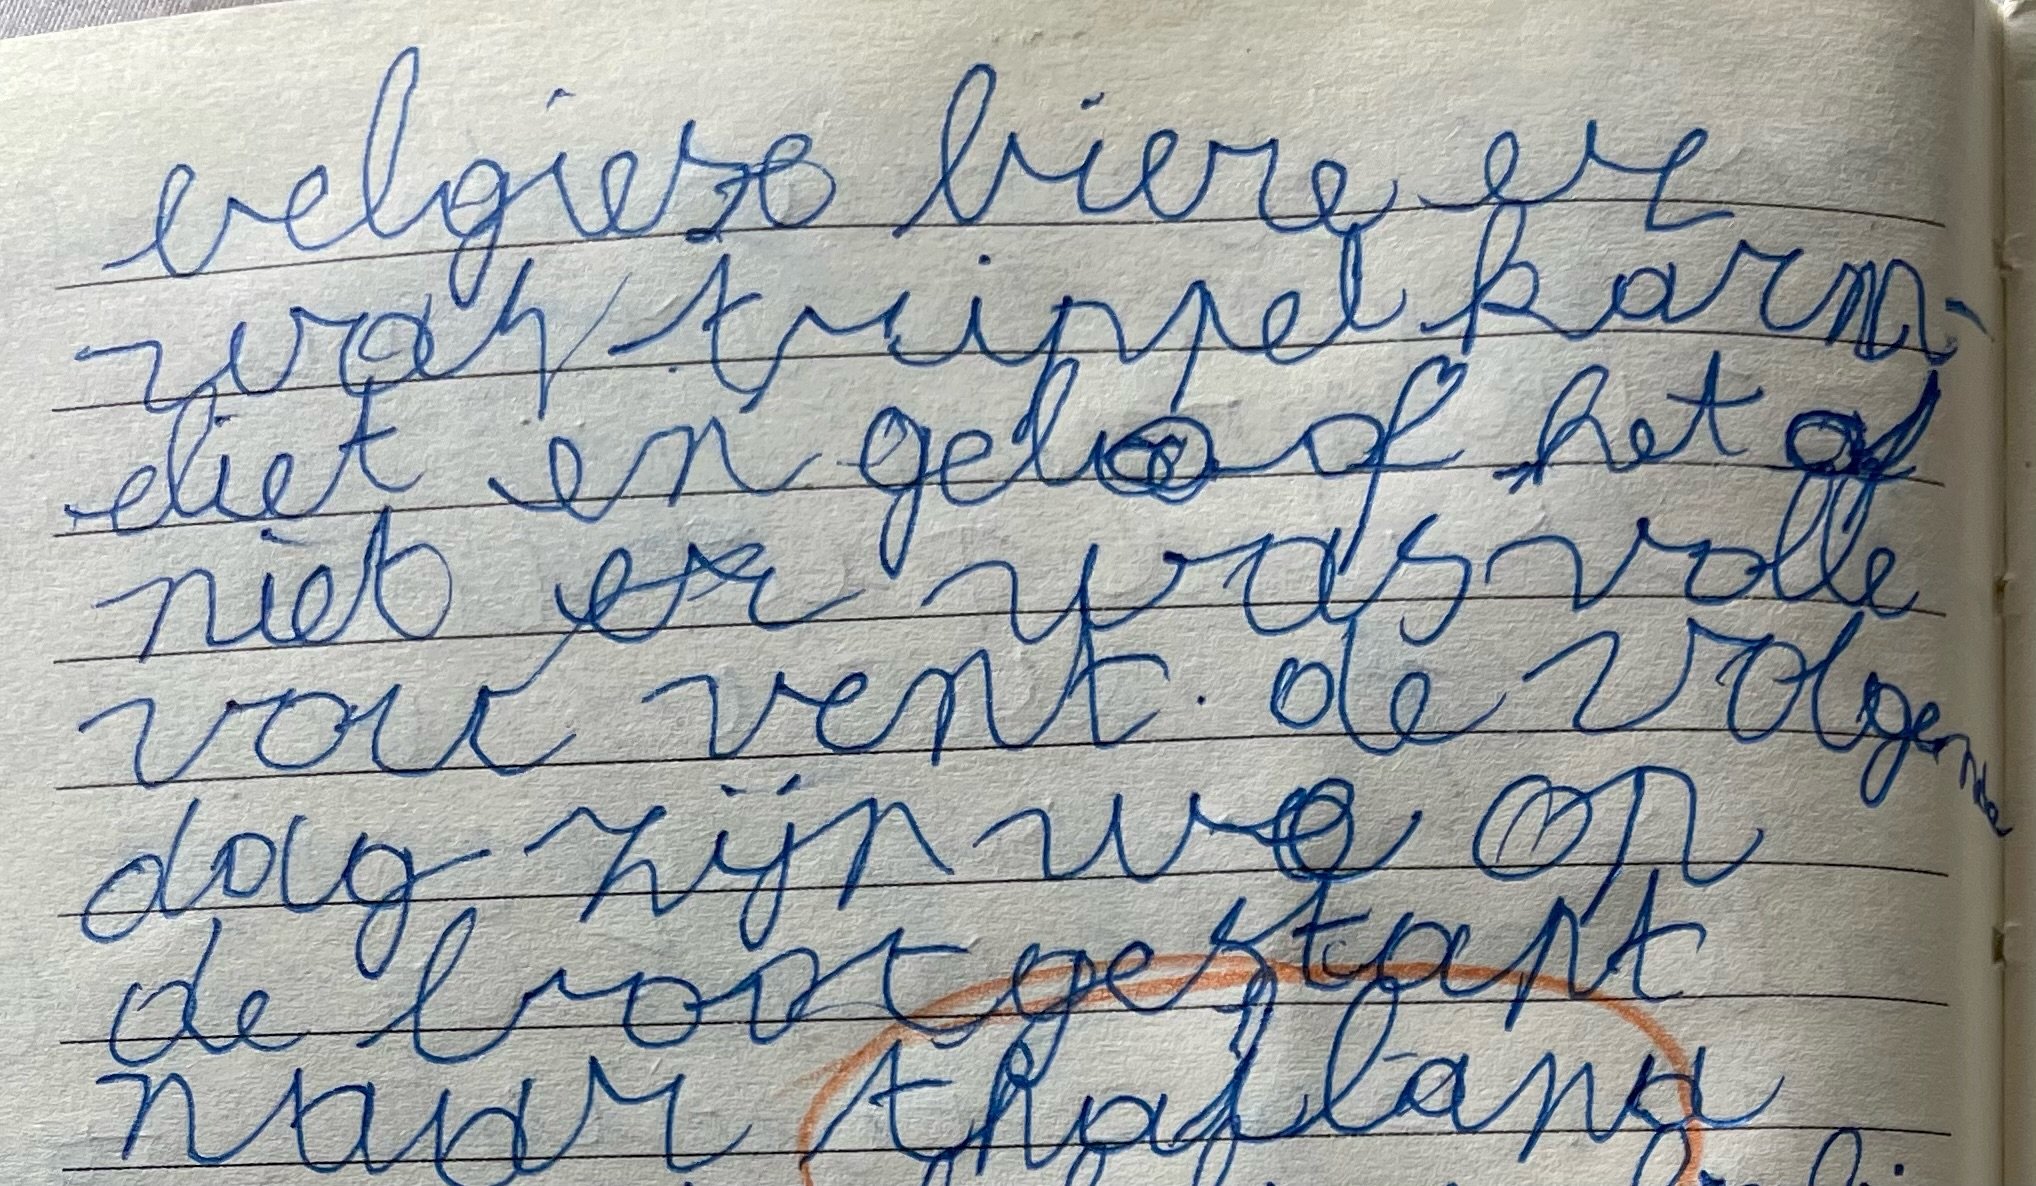 velgiese biere er
was trippel karm-
eliet en geloof het of
niet er was volle
vour vent. de volgende
dag zijn we op
de boot gestapt
naar thailand